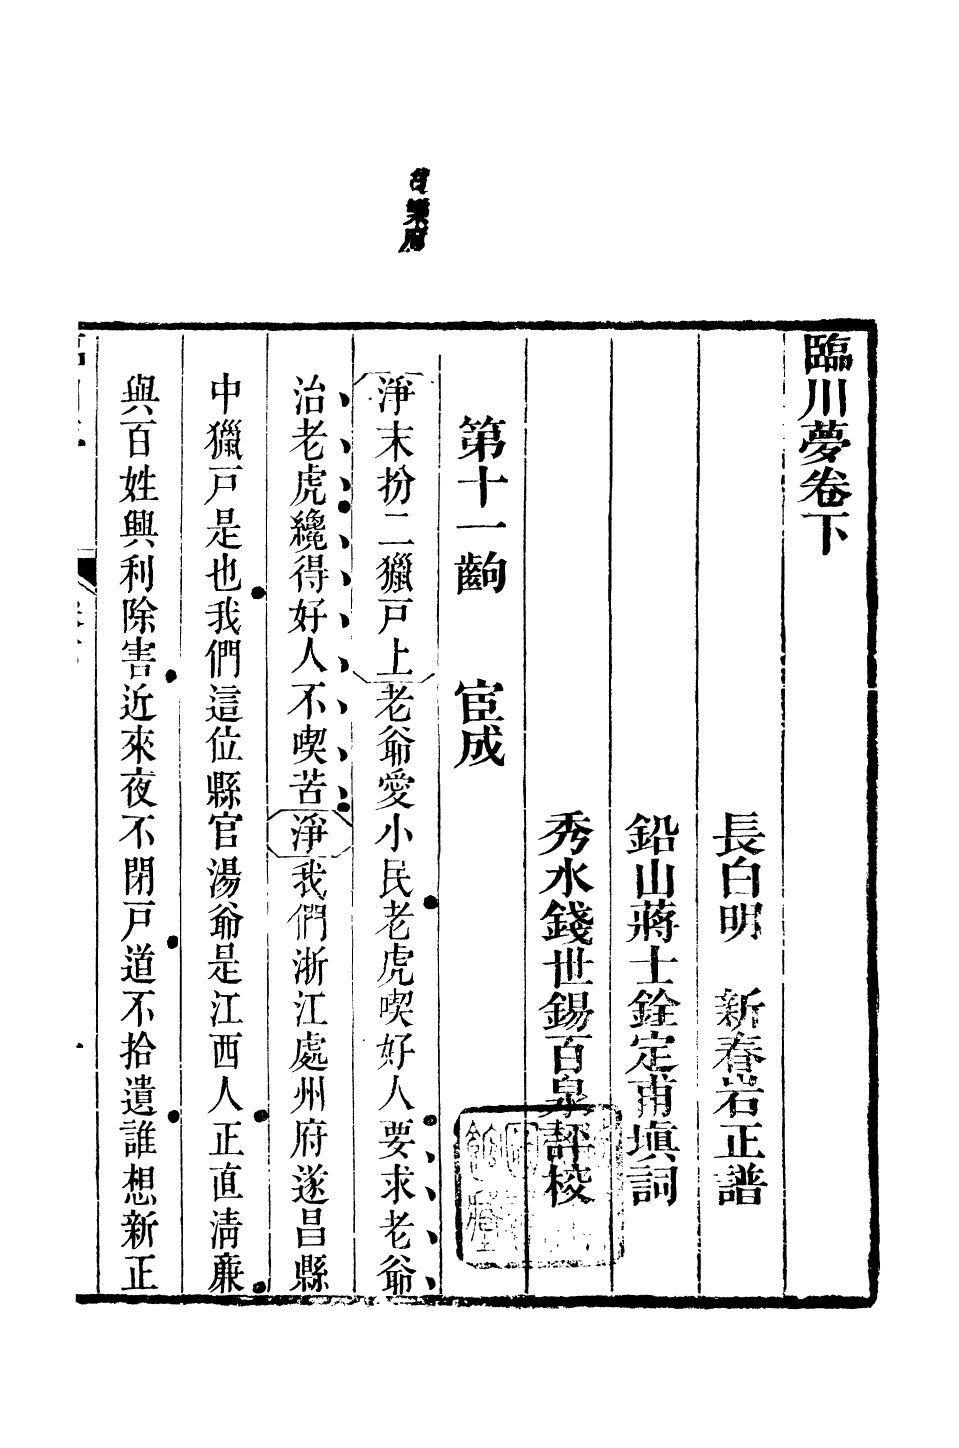 臨川夢卷下
長白明　新春岩正譜
鉛山蔣士銓定甫塡詞
秀水錢世錫百泉評校
第十一齣　宦成
淨末扮二獵戸上老爺愛小民老虎喫好人要求老爺
治老虎纔得好人不喫苦淨我們浙江處州府遂昌縣
中獵戸是也我們這位縣官湯爺是江西人正直淸亷
與百姓興利除害近來夜不閉戸道不拾遺誰想新正
樂府